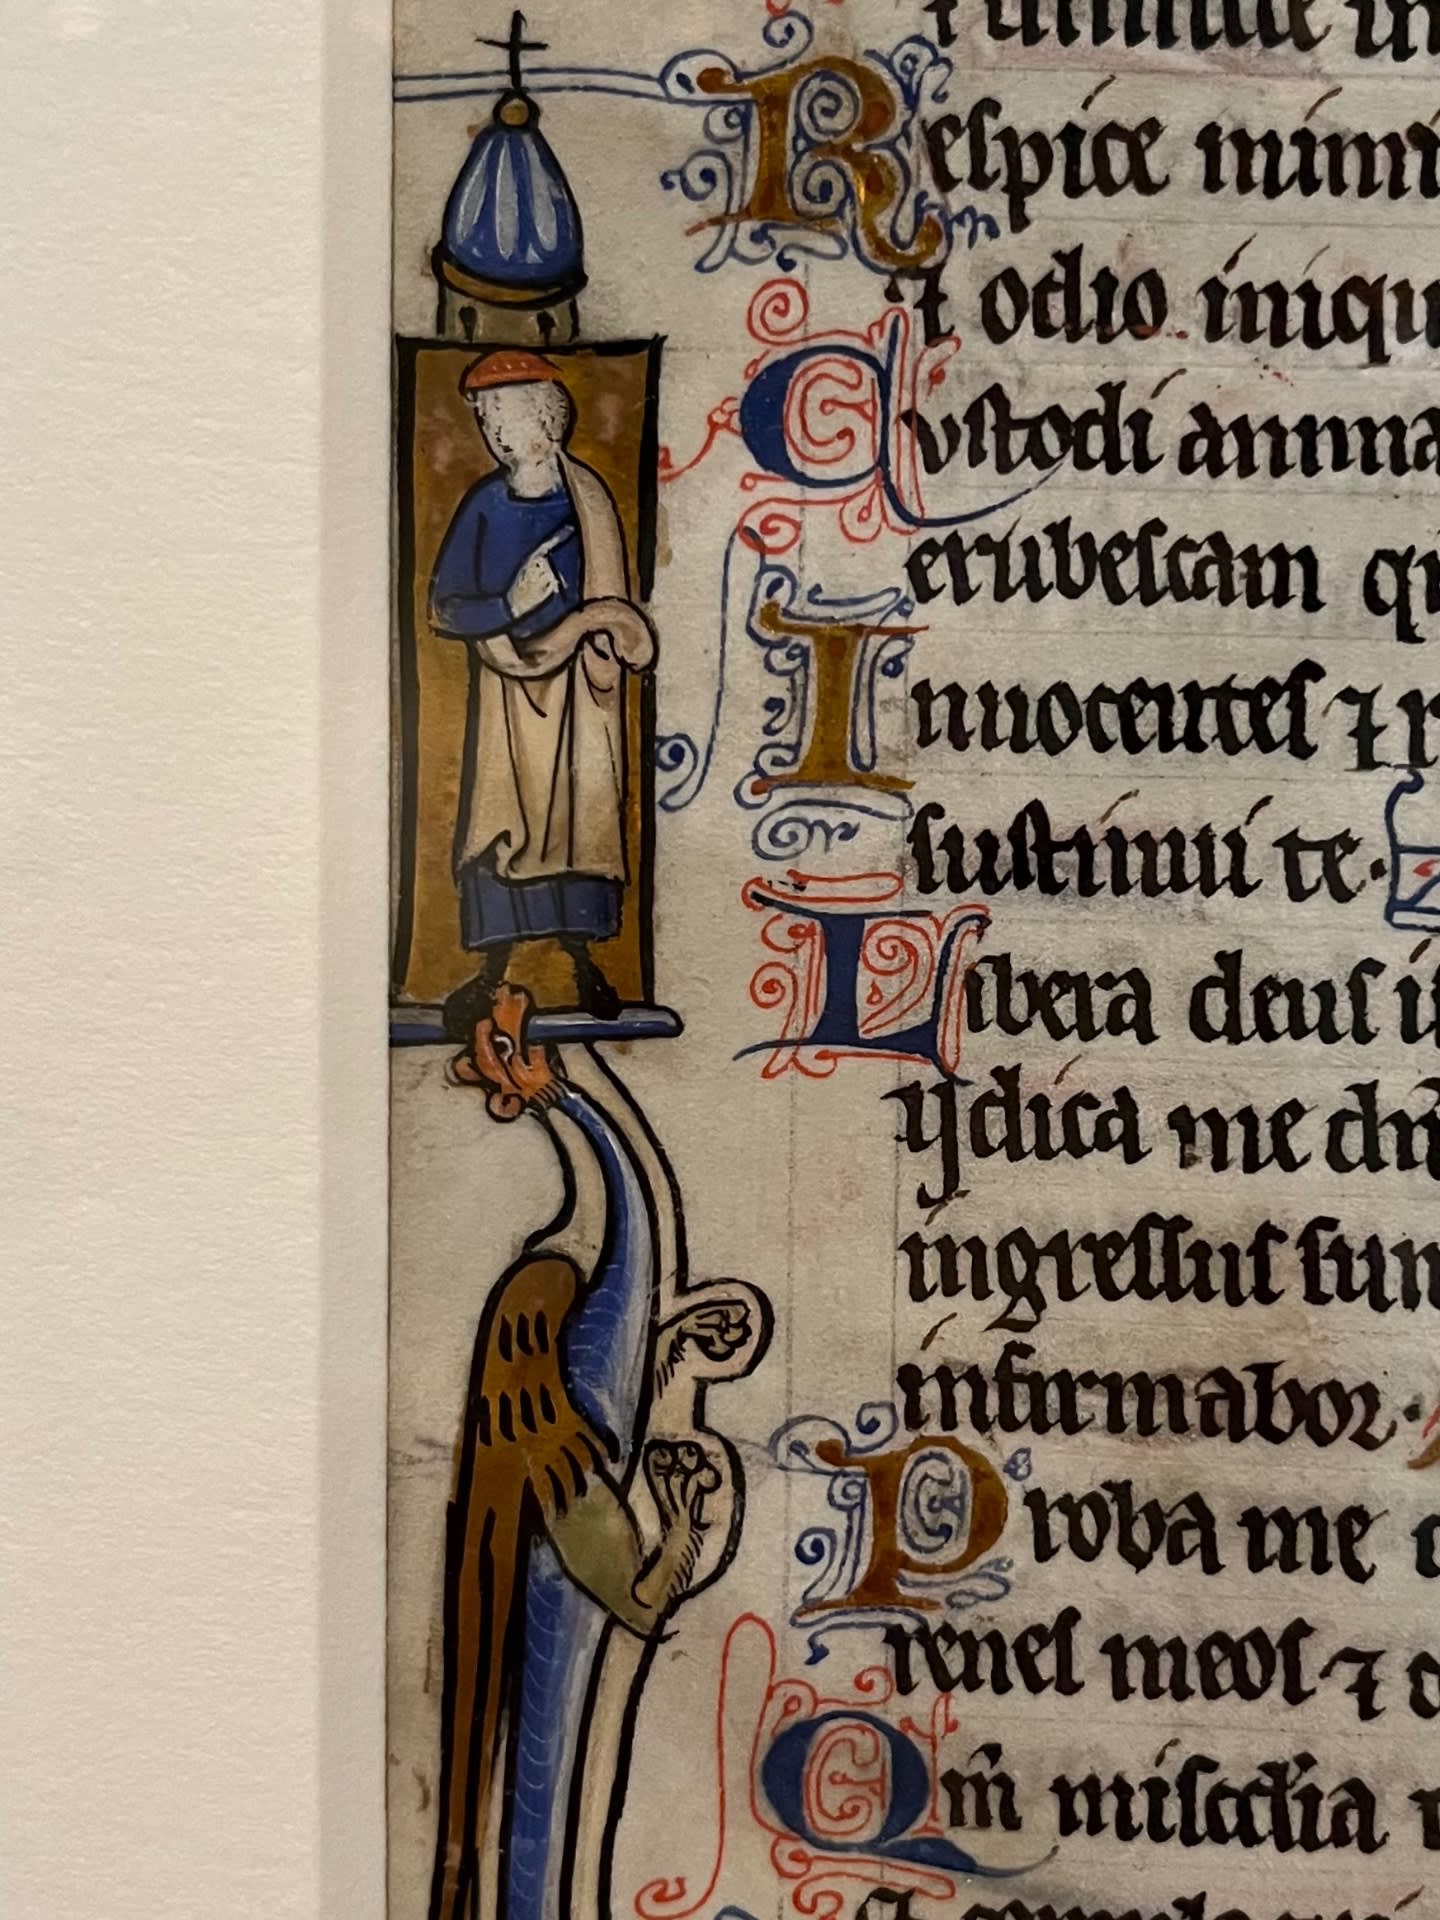 Respice inimi
⁊ odio iniqu
Custodi anima
erubescam q
Innocentes ⁊ r
sustinui te.
Libera deus is
Iudica me dn̄
ingressus sum
infirmabor.
Proba me
renes meos ⁊ c
Qm̄ misc̄dia